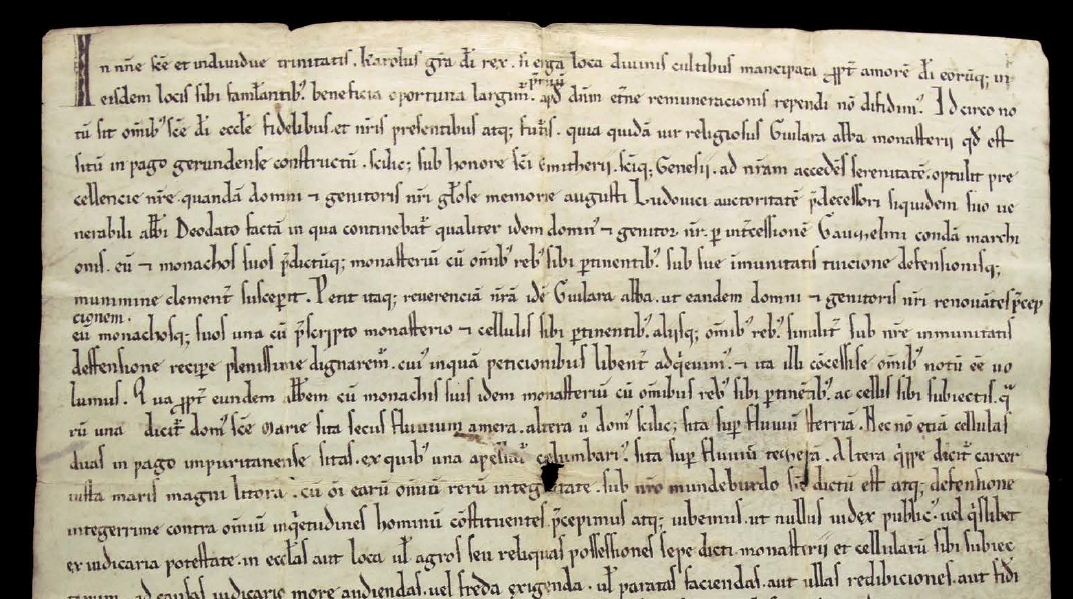 In nñe sce et individue trinitatis. karolus gra di rex. si erga loca divinis cultibus mancipata ppt amore di eorūq; in
eisdem locis sibi famlantib᾽ beneficia oportuna largim᾽. p̄miū apd dn̄m etn̄e remuneracionis rependi nō difidim᾽. Idcirco no
tū sit om̄ib᾽ sc̄e di eccl̄e fidelibus. et nr̄is presentibus atq; futr̄is. quia quidā vir religiosus Guilara abba monasterii qd̄ est
sitū in pago gerundense constructū. scilic; sub honore sc̄i emitherii. sc̄iq; Genesii. ad nr̄am accedēs serenitatē. optulit pre
cellencie nr̄e quandā domni ⁊ genitoris nr̄i glo̅se memorie augusti Ludovici auctoritatē p̄decessori siquidem suo ve
nerabili abb̄i Deodato factā in qua continebat᾽ qualiter idem domn᾽ ⁊ genitor nr̄. p̄ int̄cessionē Gaucelmi condā marchi
onis. eū ⁊ monachos suos p̄dictūq; monasteriū cū om̄ib᾽ reb᾽ sibi p̄tinentib᾽. sub sue īmunitatis tuicione defensionisq;
munimine clement᾽ suscepit. Petit itaq; reverenciā nr̄ā idē Guilara abba. ut eandem domni ⁊ genitoris nr̄i renovātes p̄cep
cionem.
eū monachosq; suos una cū p̄scripto monasterio ⁊ cellulis sibi p̄tinentib᾽. aliisq; om̄ib᾽ reb᾽. similit᾽ sub nr̄e inmunitatis
deffensione recipe plenissime dignarem᾽. cui᾽ inquā peticionibus libent᾽ adq̇evim᾽. ⁊ ita illi cōcessisse om̄ib᾽ notū eē vo
lumus. Qua ppt᾽ eundem abb̄em cū monachis suis idem monasteriū cū omibus reb᾽ sibi p̄tinētib᾽. ac cellis sibi subiectis. q̄
rū una dicit᾽ dom᾽ sc̄e Marie sita secus fluvium amera. altera v̊ dom᾽ scilic; sita sup̄ fluviū sterriā. Nec nō etiā cellulas
duas in pago impuritanense sitas. ex quib᾽ una columbari᾽. sita sup̄ fluviū Altera q̇ppe dicit᾽ carcer
iusta maris magni litora. cū om̄i earū om̄iū rerū integritate. sub nr̄o mundeburdo sic dictū est atq; defensione
integerrime contra om̄iū inq̇etudines hominū cōstituentes p̄cepimus atq; iubemus. ut nullus iudex public᾽. vel q̇slibet
ex iudicaria potestate. in eccl̄as aut loca vl̄ agros seu reliquas possessiones sepe dicti monasterii et cellularū sibi subiec
tarum. ad causas iudicario more audiendas. vel freda exigenda. vl̄ paratas faciendas. aut ullas redibiciones. aut fidi